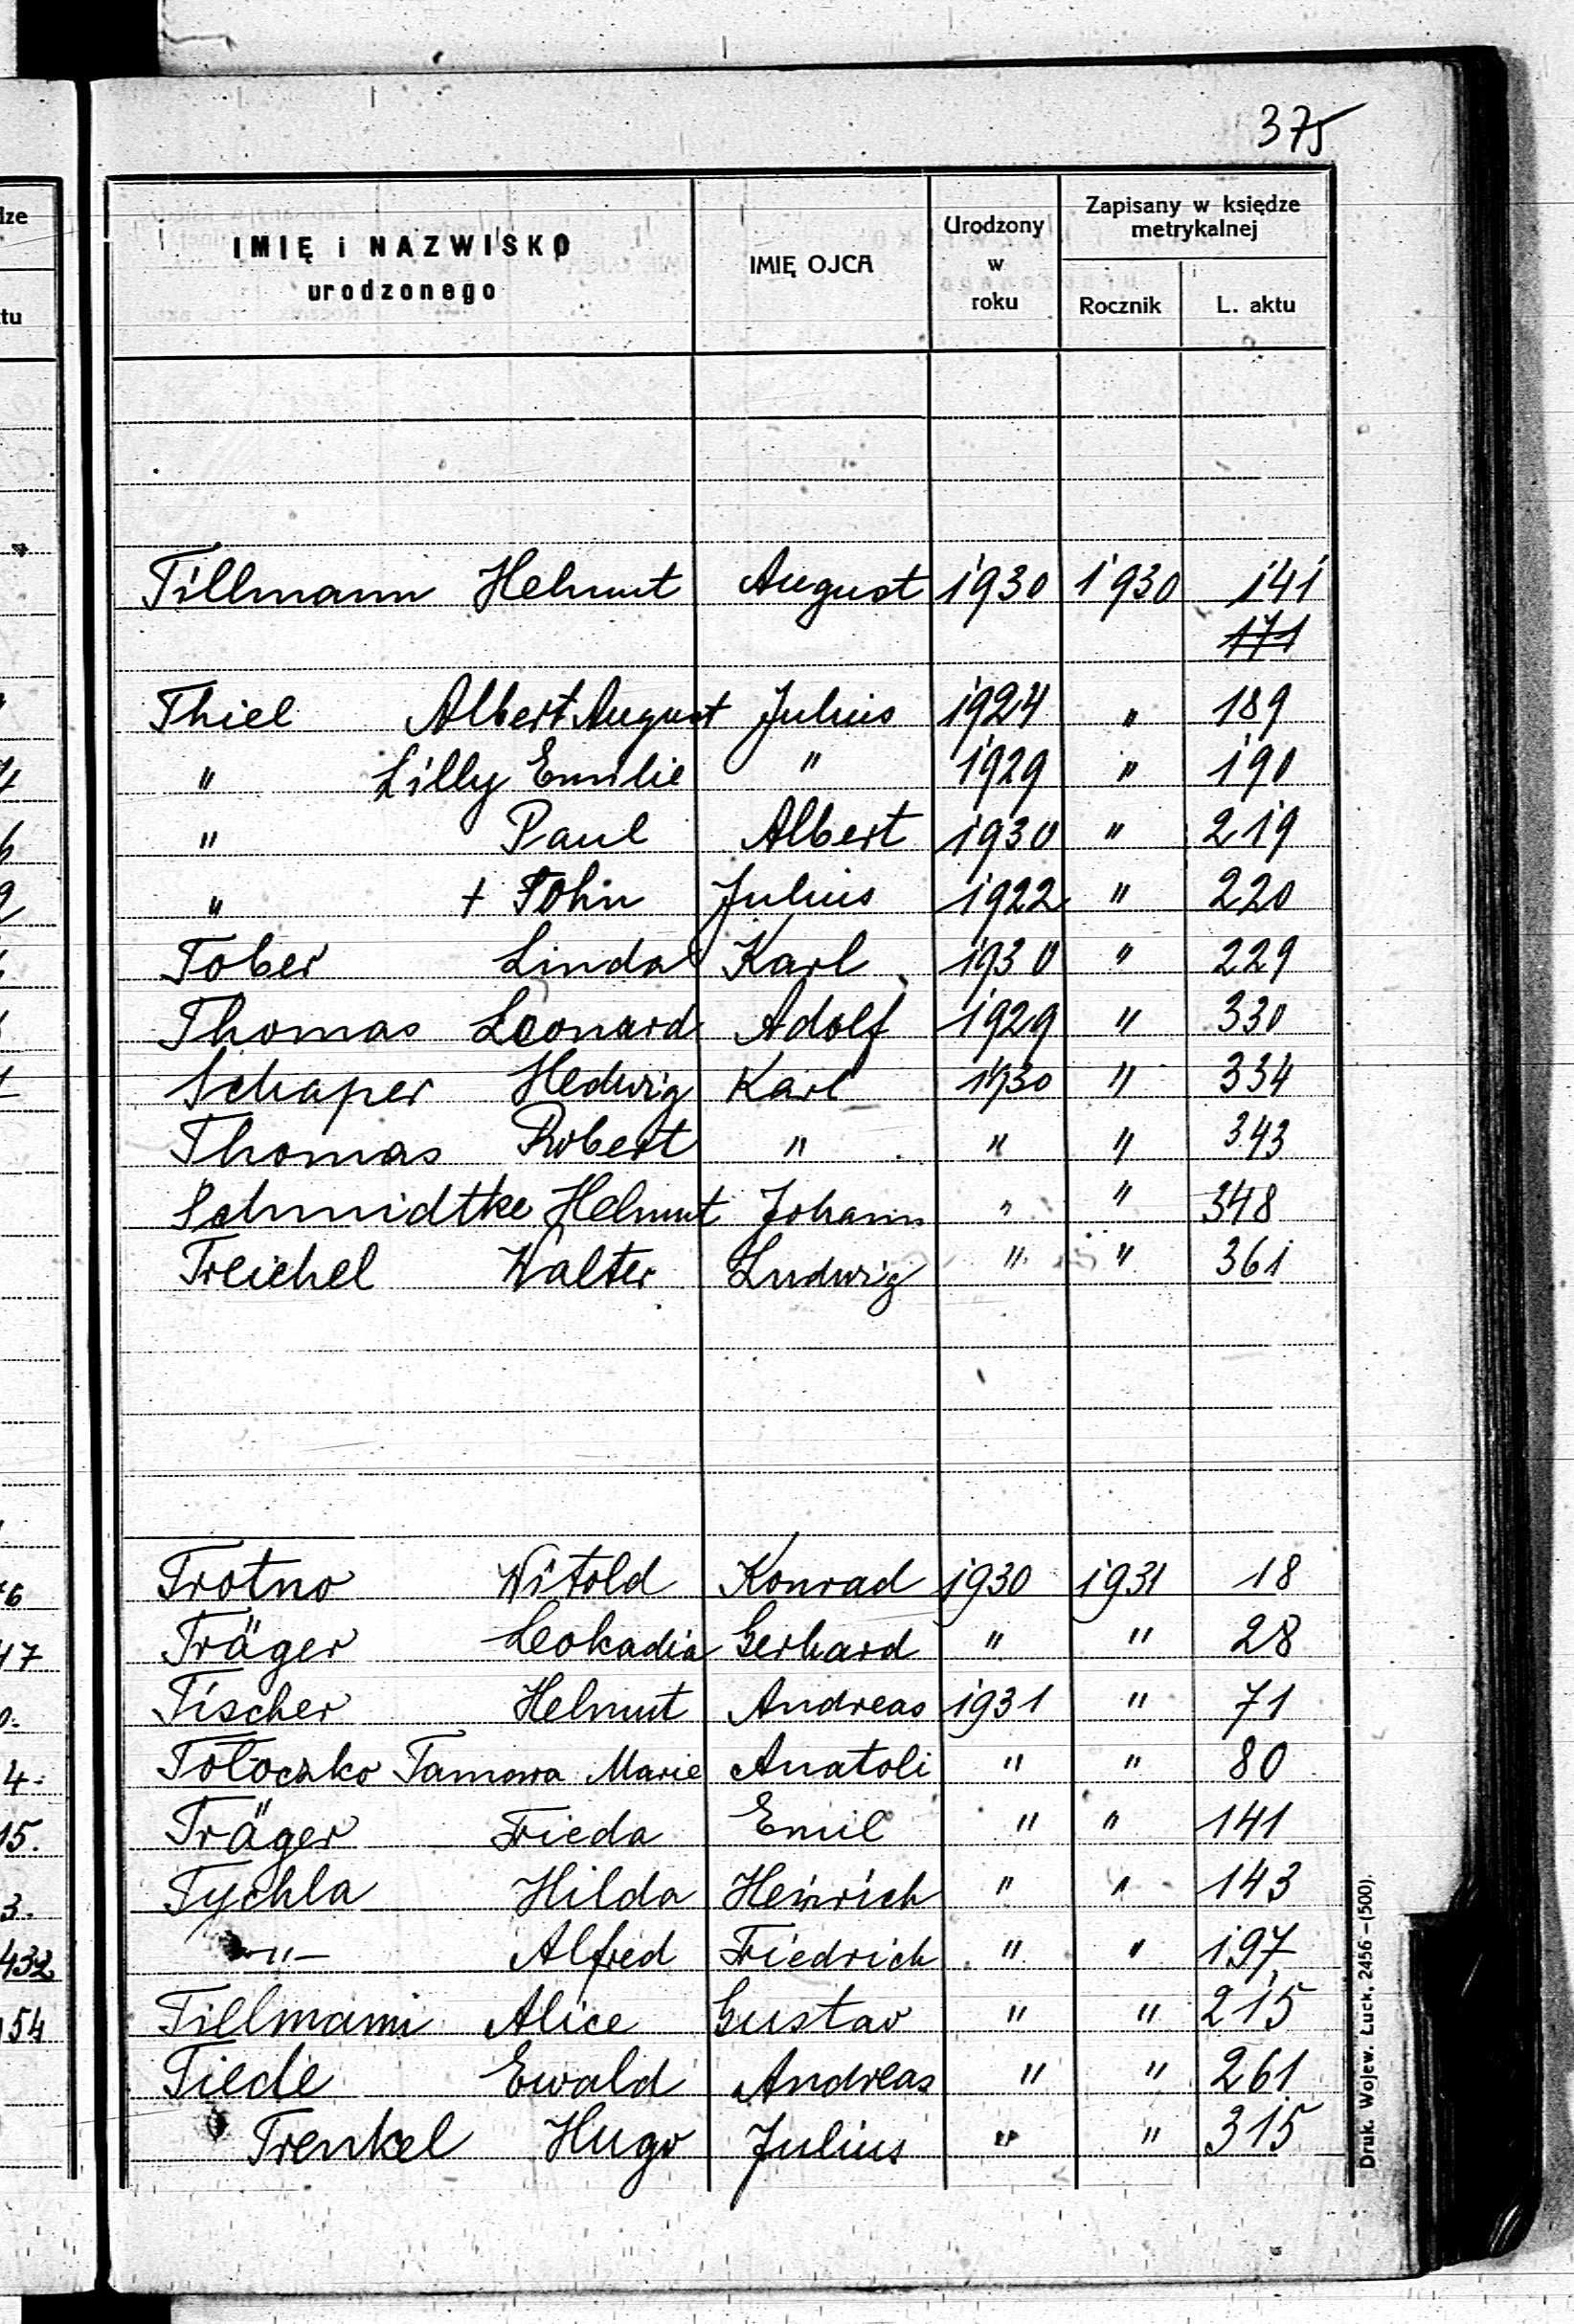 375
IMIĘ i NAZWISKO urodzonego IMIĘ OJCA Urodzony w roku Zapisany w księdze metrykalnej Rocznik L. aktu
Tillmann Helmut August 1930 1930 141
171
Thiel Albert August Julius 1924 " 189
" Lilly Emilie " 1929 " 190
" Paul Albert 1930 " 219
" + John Julius 1922 " 220
Tober Linda Karl 1930 " 229
Thomas Leonard Adolf 1929 " 330
Schaper Hedwig Karl 1930 " 334
Thomas Robert " " " 343
Schmidtke Helmut Johann " " 348
Treichel Walter Ludwig " " 361
Trotno Witold Konrad 1930 1931 18
Träger Leokadia Gerhard " " 28
Tischer Helmut Andreas 1931 " 71
Tołoczko Tamara Marie Anatoli " " 80
Träger Frieda Emil " " 141
Tychla Hilda Heinrich " " 143
-"- Alfred Friedrich " " 197
Tillmann Alice Gustav " " 215
Tiede Ewald Andreas " " 261
Trenkel Hugo Julius " " 315
Druk. Wojew. Łuck, 2456 – (500).
dze
tu
17
4.
15.
3.
432
54